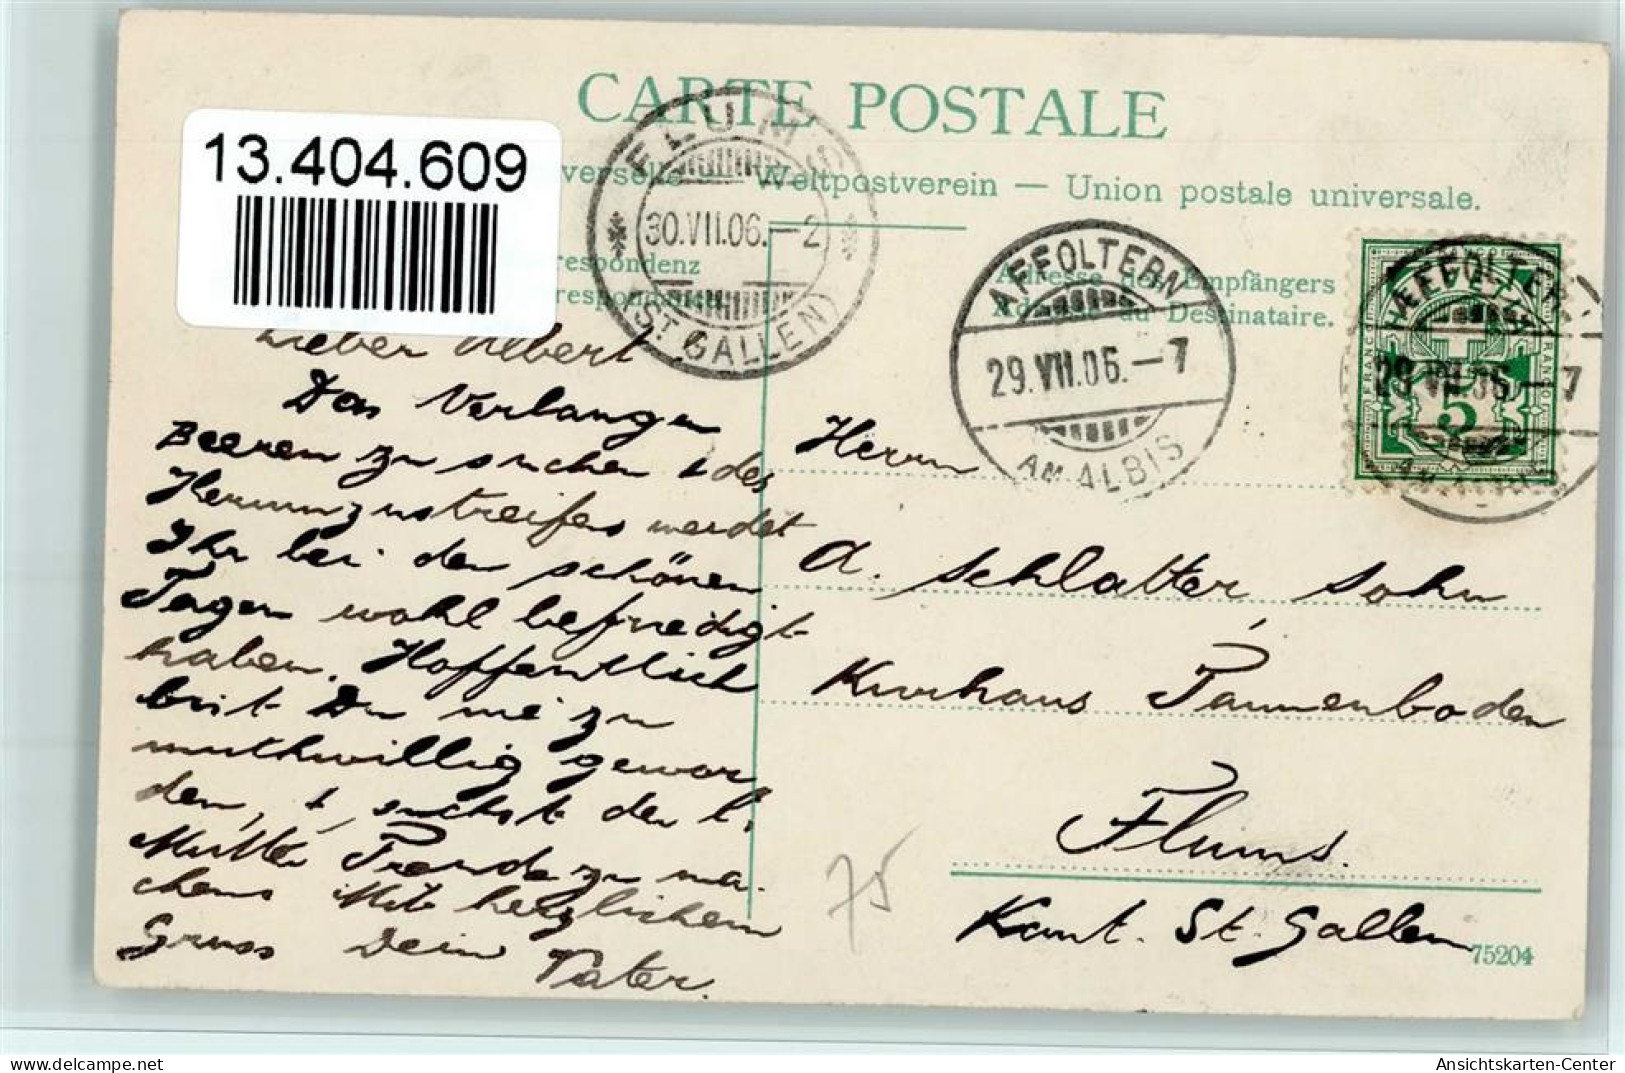 CARTE POSTALE
13.404.609
verselle Weltpostverein — Union postale universelle.
FLUMS
30.VII.06.—2
(ST. GALLEN)
respondenz
respondance
AFFOLTERN
29.VII.06.—7
AM ALBIS
Adresse des Empfängers
Adresse du Destinataire.
FRANCO
5
AFFOLTERN
29.VII.06.—7
Lieber Albert
Das Verlangen
Beeren zu suchen & des
Herumzustreifens werdet
Ihr bei den schönen
Tagen wohl befriedigt
haben. Hoffentlich
bist Du nie zu
muthwillig gewor
den, & suchst der l.
Mutter Freude zu ma-
chen. Mit herzlichem
Gruss Dein
Vater.
Herrn
A. Schlatter Sohn
Kurhaus Tannenboden
Flums.
Kant. St. Gallen
75
75204
www.ansichtskartenversand.com
Ansichtskarten-Center